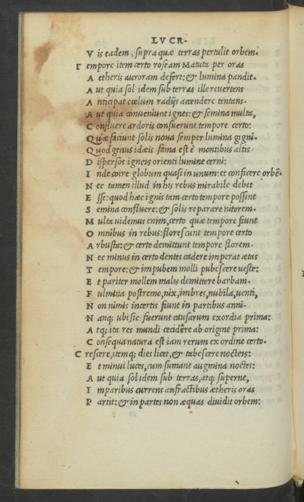 LVCR.
V is eadem, supra quæ terras pertulit orbem.
T empore item certo roseam Matuta per oras
A etheris auroram defert: & lumina pandit.
A ut quia sol idem sub terras ille reuertens
A nticipat cœlum radijs accendere tentans.
A ut quia conueniunt ignes: & semina multa,
C onfluere ardoris consuerunt tempore certo:
Q uæ faciunt solis noua semper lumina gigni.
Q uod genus idæis fama est è montibus altis
D ispersos igneis orienti lumine cerni:
I nde coire globum quasi in unum: et conficere orbē.
N ec tamen illud in his rebus mirabile debet
E sse: quod hæc ignis tam certo tempore possint
S emina confluere: & solis reparare nitorem.
M ulta uidemus enim, certo quæ tempore fiunt
O mnibus in rebus: florescunt tempore certo
A rbusta: & certo demittunt tempore florem.
N ec minus in certo dentes cadere imperat ætas
T empore: & impubem molli pubescere ueste:
E t pariter mollem malis demittere barbam.
F ulmina postremo, nix, imbres, nubila, uenti,
N on nimis incertis fiunt in partibus anni.
N anq; ubi sic fuerunt causarum exordia prima:
A tq; ita res mundi cecidere ab origine prima:
C onsequa natura est iam rerum ex ordine certo.
C rescere, itemq; dies licet, & tabescere nocteis:
E t minui luces, cum sumant augmina noctes:
A ut quia sol idem sub terras, atq; superne,
I mparibus currens anfractibus ætheris oras
P artit: & in partes non æquas diuidit orbem: